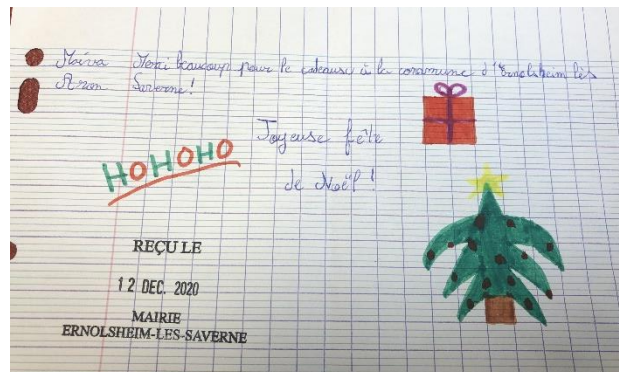 Maïva Merci beaucoup pour le cadeaux à la commune d'Ernolsheim lès
Aron Saverne!
Joyeuse fête
de Noël!
HOHOHO
REÇU LE
12 DEC. 2020
MAIRIE
ERNOLSHEIM-LES-SAVERNE